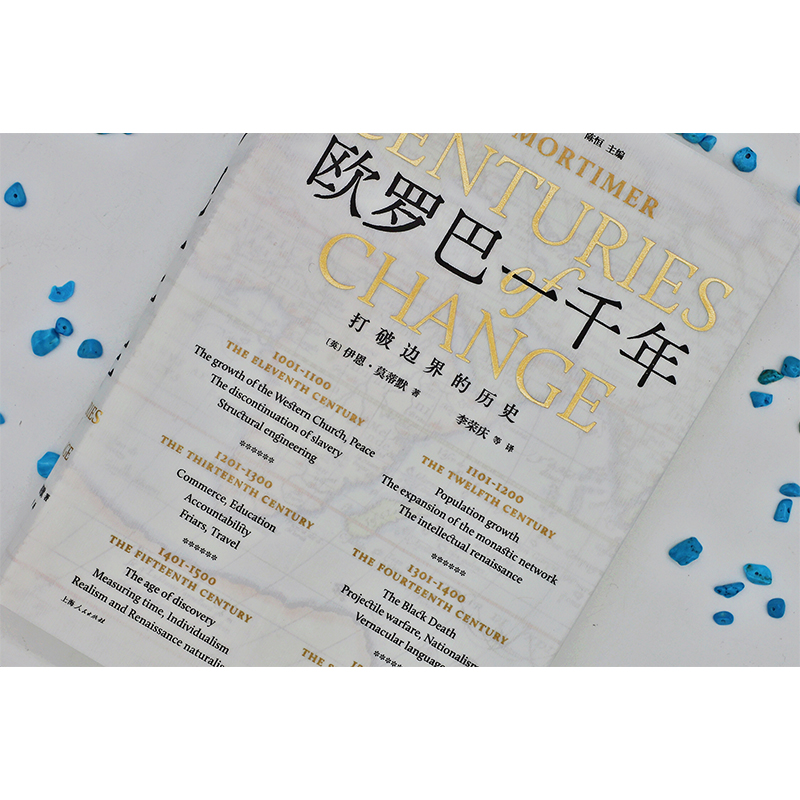 陈恒 主编
MORTIMER
CENTURIES
欧罗巴一千年
of
CHANGE
打破边界的历史
[英] 伊恩·莫蒂默 著
李荣庆 等 译
1001-1100
THE ELEVENTH CENTURY
The growth of the Western Church, Peace
The discontinuation of slavery
Structural engineering
******
1101-1200
THE TWELFTH CENTURY
Population growth
The expansion of the monastic network
The intellectual renaissance
******
1201-1300
THE THIRTEENTH CENTURY
Commerce, Education
Accountability
Friars, Travel
******
1301-1400
THE FOURTEENTH CENTURY
The Black Death
Projectile warfare, Nationalism
Vernacular language
1401-1500
THE FIFTEENTH CENTURY
The age of discovery
Measuring time, Individualism
Realism and Renaissance naturalis
THE S
上海人民出版社